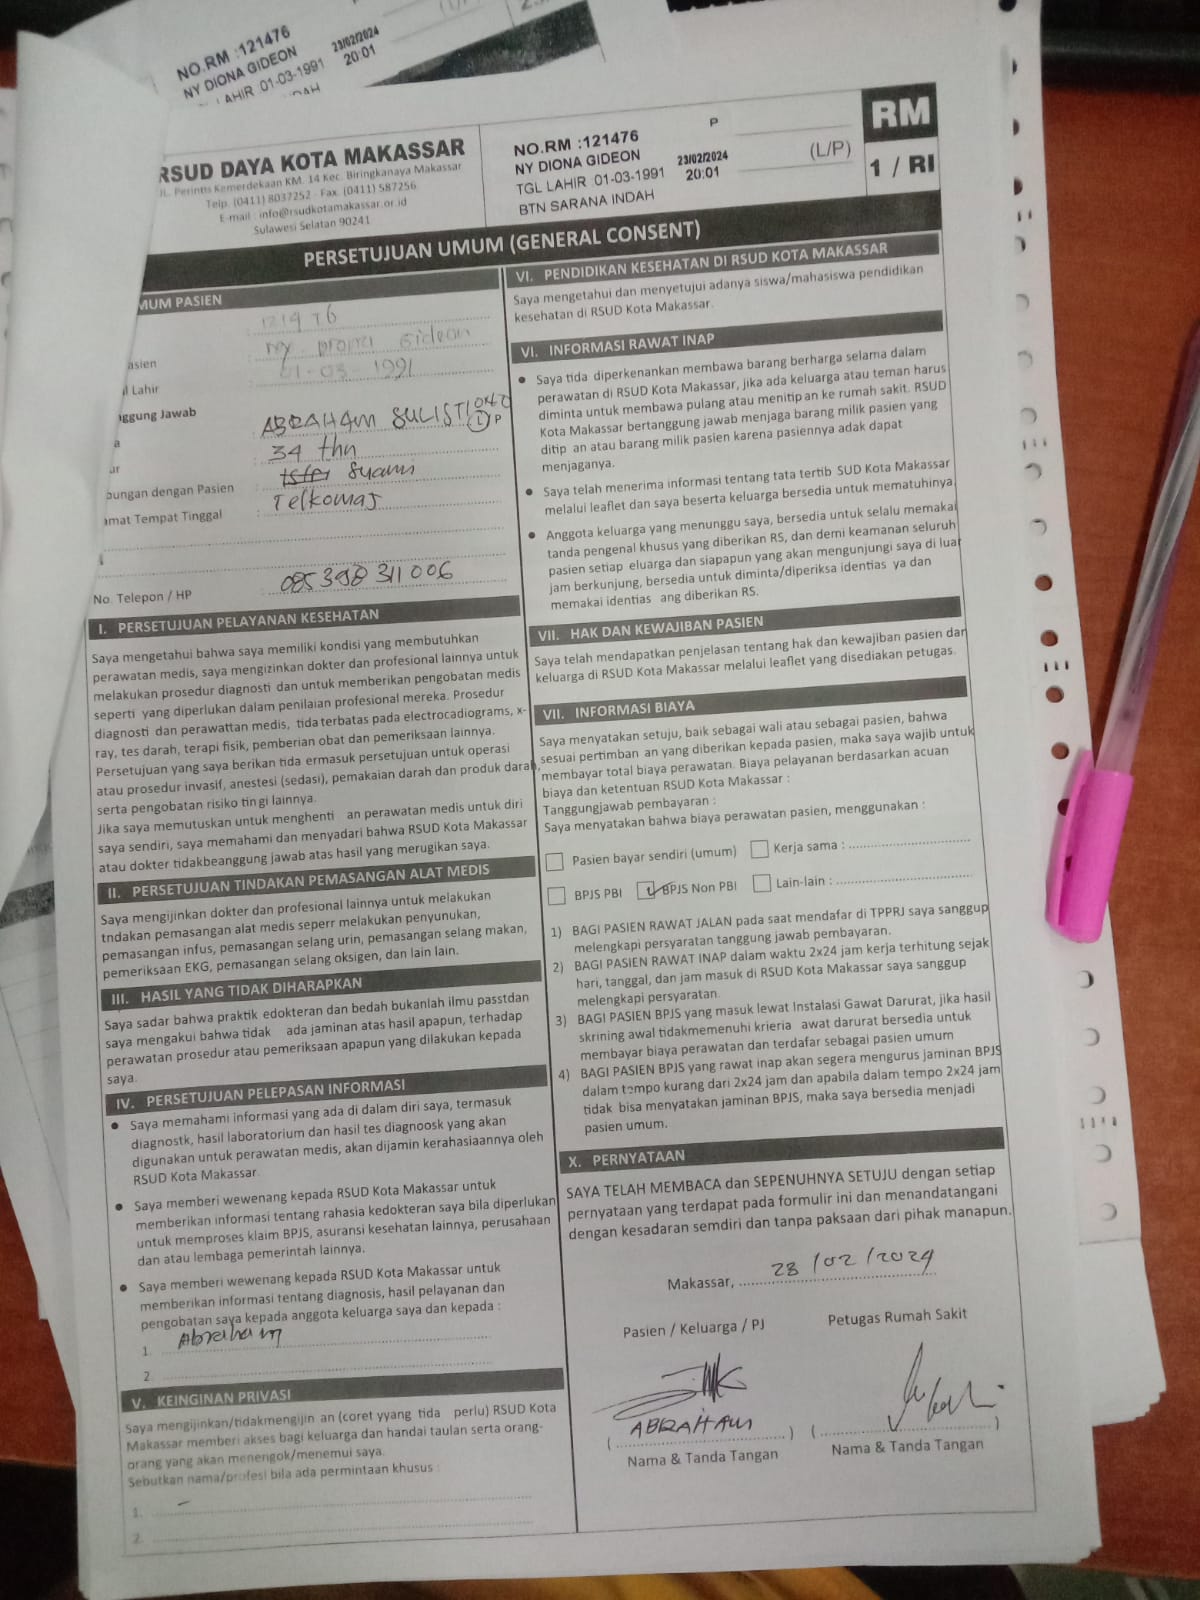 NO.RM :121476
NY DIONA GIDEON
LAHIR 01-03-1991
23/02/2024
20:01
RSUD DAYA KOTA MAKASSAR
JL. Perintis Kemerdekaan KM. 14 Kec. Biringkanaya Makassar
Telp. (0411) 8037252 - Fax. (0411) 587256
E-mail : info@rsudkotamakassar.or.id
Sulawesi Selatan 90241
NO.RM :121476
P
NY DIONA GIDEON
23/02/2024
TGL LAHIR 01-03-1991
20:01
BTN SARANA INDAH
(L/P)
RM
1 / RI
PERSETUJUAN UMUM (GENERAL CONSENT)
UMUM PASIEN
: 121476
asien : Ny. Diona Gideon
l Lahir : 01-03-1991
nggung Jawab
a : ABRAHAM SULISTIONO (L) P
ur : 34 thn
bungan dengan Pasien : Istri Suami
amat Tempat Tinggal : Telkomas
No. Telepon / HP : 085398311006
I. PERSETUJUAN PELAYANAN KESEHATAN
Saya mengetahui bahwa saya memiliki kondisi yang membutuhkan
perawatan medis, saya mengizinkan dokter dan profesional lainnya untuk
melakukan prosedur diagnosti dan untuk memberikan pengobatan medis
seperti yang diperlukan dalam penilaian profesional mereka. Prosedur
diagnosti dan perawattan medis, tida terbatas pada electrocadiograms, x-
ray, tes darah, terapi fisik, pemberian obat dan pemeriksaan lainnya.
Persetujuan yang saya berikan tida ermasuk persetujuan untuk operasi
atau prosedur invasif, anestesi (sedasi), pemakaian darah dan produk darah,
serta pengobatan risiko tin gi lainnya.
Jika saya memutuskan untuk menghenti an perawatan medis untuk diri
saya sendiri, saya memahami dan menyadari bahwa RSUD Kota Makassar
atau dokter tidakbeanggung jawab atas hasil yang merugikan saya.
II. PERSETUJUAN TINDAKAN PEMASANGAN ALAT MEDIS
Saya mengijinkan dokter dan profesional lainnya untuk melakukan
tndakan pemasangan alat medis seperr melakukan penyunukan,
pemasangan infus, pemasangan selang urin, pemasangan selang makan,
pemeriksaan EKG, pemasangan selang oksigen, dan lain lain.
III. HASIL YANG TIDAK DIHARAPKAN
Saya sadar bahwa praktik edokteran dan bedah bukanlah ilmu passtdan
saya mengakui bahwa tidak ada jaminan atas hasil apapun, terhadap
perawatan prosedur atau pemeriksaan apapun yang dilakukan kepada
saya.
IV. PERSETUJUAN PELEPASAN INFORMASI
• Saya memahami informasi yang ada di dalam diri saya, termasuk
diagnostk, hasil laboratorium dan hasil tes diagnoosk yang akan
digunakan untuk perawatan medis, akan dijamin kerahasiaannya oleh
RSUD Kota Makassar.
• Saya memberi wewenang kepada RSUD Kota Makassar untuk
memberikan informasi tentang rahasia kedokteran saya bila diperlukan
untuk memproses klaim BPJS, asuransi kesehatan lainnya, perusahaan
dan atau lembaga pemerintah lainnya.
• Saya memberi wewenang kepada RSUD Kota Makassar untuk
memberikan informasi tentang diagnosis, hasil pelayanan dan
pengobatan saya kepada anggota keluarga saya dan kepada :
1. Abraham
2.
V. KEINGINAN PRIVASI
Saya mengijinkan/tidakmengijin an (coret yyang tida perlu) RSUD Kota
Makassar memberi akses bagi keluarga dan handai taulan serta orang-
orang yang akan menengok/menemui saya.
Sebutkan nama/profesi bila ada permintaan khusus :
1. -
2.
VI. PENDIDIKAN KESEHATAN DI RSUD KOTA MAKASSAR
Saya mengetahui dan menyetujui adanya siswa/mahasiswa pendidikan
kesehatan di RSUD Kota Makassar.
VI. INFORMASI RAWAT INAP
• Saya tida diperkenankan membawa barang berharga selama dalam
perawatan di RSUD Kota Makassar, jika ada keluarga atau teman harus
diminta untuk membawa pulang atau menitip an ke rumah sakit. RSUD
Kota Makassar bertanggung jawab menjaga barang milik pasien yang
ditip an atau barang milik pasien karena pasiennya adak dapat
menjaganya.
• Saya telah menerima informasi tentang tata tertib SUD Kota Makassar
melalui leaflet dan saya beserta keluarga bersedia untuk mematuhinya
• Anggota keluarga yang menunggu saya, bersedia untuk selalu memakai
tanda pengenal khusus yang diberikan RS, dan demi keamanan seluruh
pasien setiap eluarga dan siapapun yang akan mengunjungi saya di luar
jam berkunjung, bersedia untuk diminta/diperiksa identias ya dan
memakai identias ang diberikan RS.
VII. HAK DAN KEWAJIBAN PASIEN
Saya telah mendapatkan penjelasan tentang hak dan kewajiban pasien dan
keluarga di RSUD Kota Makassar melalui leaflet yang disediakan petugas.
VII. INFORMASI BIAYA
Saya menyatakan setuju, baik sebagai wali atau sebagai pasien, bahwa
sesuai pertimban an yang diberikan kepada pasien, maka saya wajib untuk
membayar total biaya perawatan. Biaya pelayanan berdasarkan acuan
biaya dan ketentuan RSUD Kota Makassar :
Tanggungjawab pembayaran :
Saya menyatakan bahwa biaya perawatan pasien, menggunakan :
Pasien bayar sendiri (umum) Kerja sama :
BPJS PBI BPJS Non PBI Lain-lain :
1) BAGI PASIEN RAWAT JALAN pada saat mendafar di TPPRJ saya sanggup
melengkapi persyaratan tanggung jawab pembayaran.
2) BAGI PASIEN RAWAT INAP dalam waktu 2x24 jam kerja terhitung sejak
hari, tanggal, dan jam masuk di RSUD Kota Makassar saya sanggup
melengkapi persyaratan.
3) BAGI PASIEN BPJS yang masuk lewat Instalasi Gawat Darurat, jika hasil
skrining awal tidakmemenuhi krieria awat darurat bersedia untuk
membayar biaya perawatan dan terdafar sebagai pasien umum
4) BAGI PASIEN BPJS yang rawat inap akan segera mengurus jaminan BPJS
dalam tempo kurang dari 2x24 jam dan apabila dalam tempo 2x24 jam
tidak bisa menyatakan jaminan BPJS, maka saya bersedia menjadi
pasien umum.
X. PERNYATAAN
SAYA TELAH MEMBACA dan SEPENUHNYA SETUJU dengan setiap
pernyataan yang terdapat pada formulir ini dan menandatangani
dengan kesadaran semdiri dan tanpa paksaan dari pihak manapun.
Makassar, 23/02/2024
Pasien / Keluarga / PJ Petugas Rumah Sakit
(ABRAHAM) ( )
Nama & Tanda Tangan Nama & Tanda Tangan